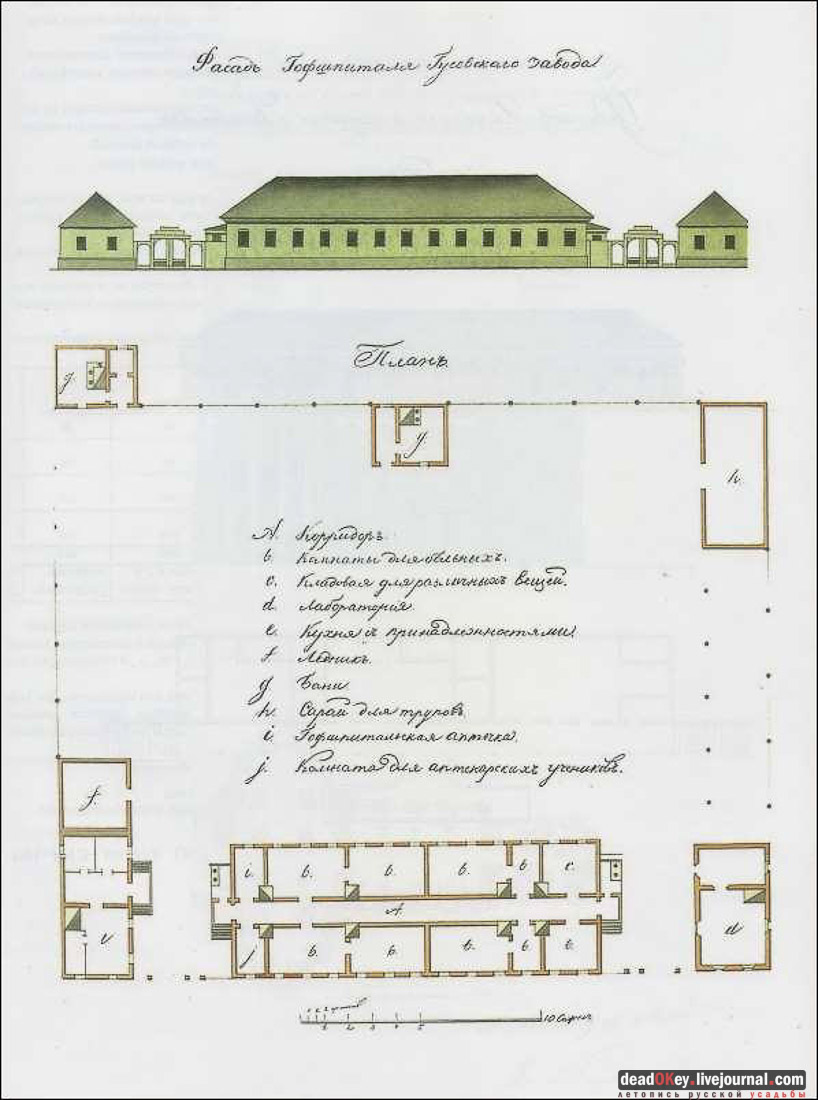 Фасадъ Гофшпиталя Гусевскаго Завода
Планъ.
g.
g.
h.
A. Корридоръ.
b. Комнаты для больныхъ.
c. Кладовая для различныхъ вещей.
d. Лаборатория
e. Кухня съ принадлежностями
f. Ледникъ.
g. Бани
h. Сарай для труповъ.
i. Гофшпитальная аптечка.
j. Комната для аптекарскихъ учениковъ.
f.
i. b. b. b. b. c.
A.
e d
j b. b. b. b b.
1 2 3 4 5 10 Сажен
deadOKey.livejournal.com
летопись русской усадьбы